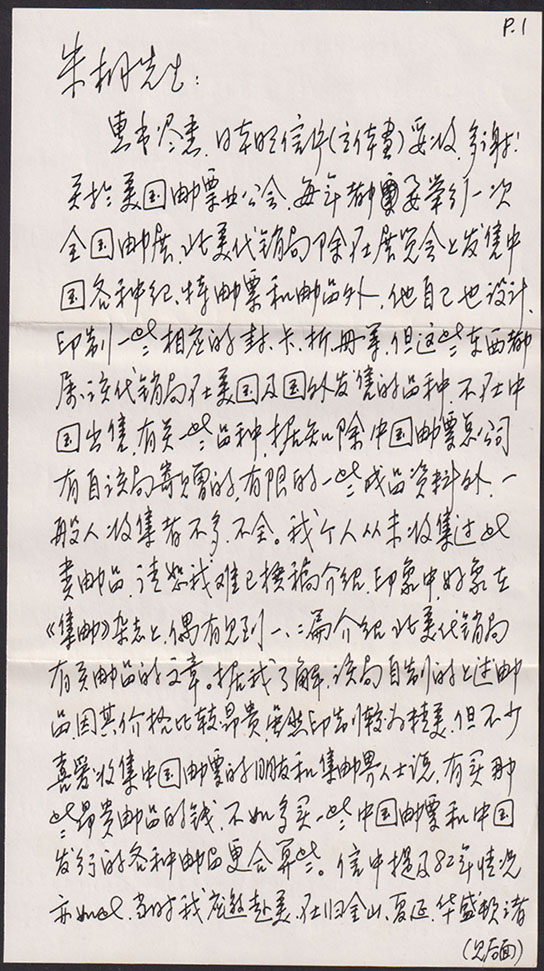 P.1
朱 先生：
惠书尽悉，日本旺信件（立体书）妥收，多谢！
关于美国邮票业公会，每年都要举行一次
全国邮展，北美代销局除在展览会上发售中
国各种纪、特邮票和邮品外，他自己也设计、
印制一些相应的封、卡、折、册等，但这些东西都
属该代销局在美国及国外发售的品种，不在中
国出售，有关一些品种，据知除中国邮票总公司
有自该局寄赠的有限的一些成品资料外，一
般人收集者不多，不全。我个人从未收集过此
类邮品，请恕我难已撰稿介绍，印象中好象在
《集邮》杂志上，偶有见到一、二篇介绍北美代销局
有关邮品的文章。据我了解，该局自制的上述邮
品因其价格比较昂贵，虽然印制较为精美，但不少
喜爱收集中国邮票的朋友和集邮界人士说，有买那
些昂贵邮品的钱，不如多买一些中国邮票和中国
发行的各种邮品更合算些。信中提及82年情况
亦如此，当时我应邀赴美，在旧金山、夏延、华盛顿诸
（见后面）